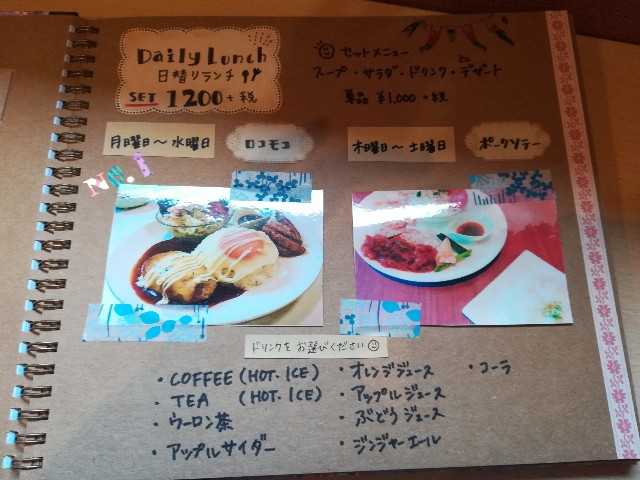 Daily Lunch
日替りランチ
SET 1200+税
セットメニュー
スープ・サラダ・ドリンク・デザート
単品 ¥1,000 +税
月曜日〜水曜日
ロコモコ
木曜日〜土曜日
ポークソテー
ドリンクをお選びください
・COFFEE (HOT. ICE)
・TEA (HOT. ICE)
・ウーロン茶
・アップルサイダー
・オレンジジュース
・アップルジュース
・ぶどうジュース
・ジンジャーエール
・コーラ